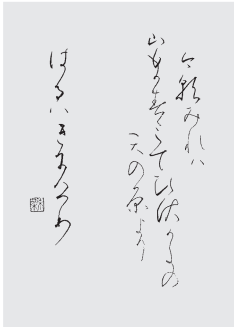 今朝みれハ
山もかすみてひさかたの
天の原より
はるハきにけり